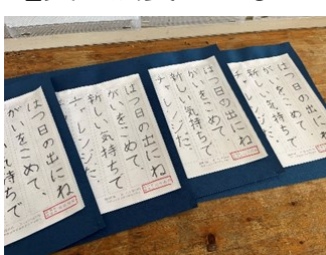 はつ日の出にね
がいをこめて、
新しい気持ちで
チャレンジだ。
はつ日の出にね
がいをこめて、
新しい気持ちで
チャレンジだ。
はつ日の出にね
がいをこめて、
新しい気持ちで
チャレンジだ。
はつ日の出にね
がいをこめて、
気持ちで